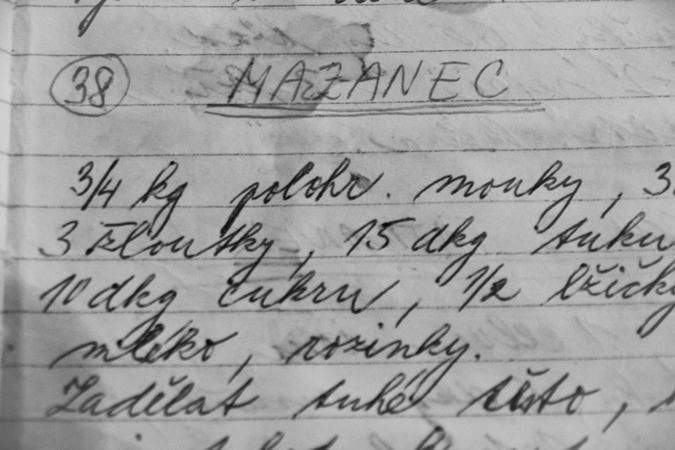 38 MAZANEC
3/4 kg polohr. mouky, 3
3 žloutky, 15 dkg tuku
10 dkg cukru, 1/2 lžičky
mléko, rozinky.
Zadělat tuhé těsto,